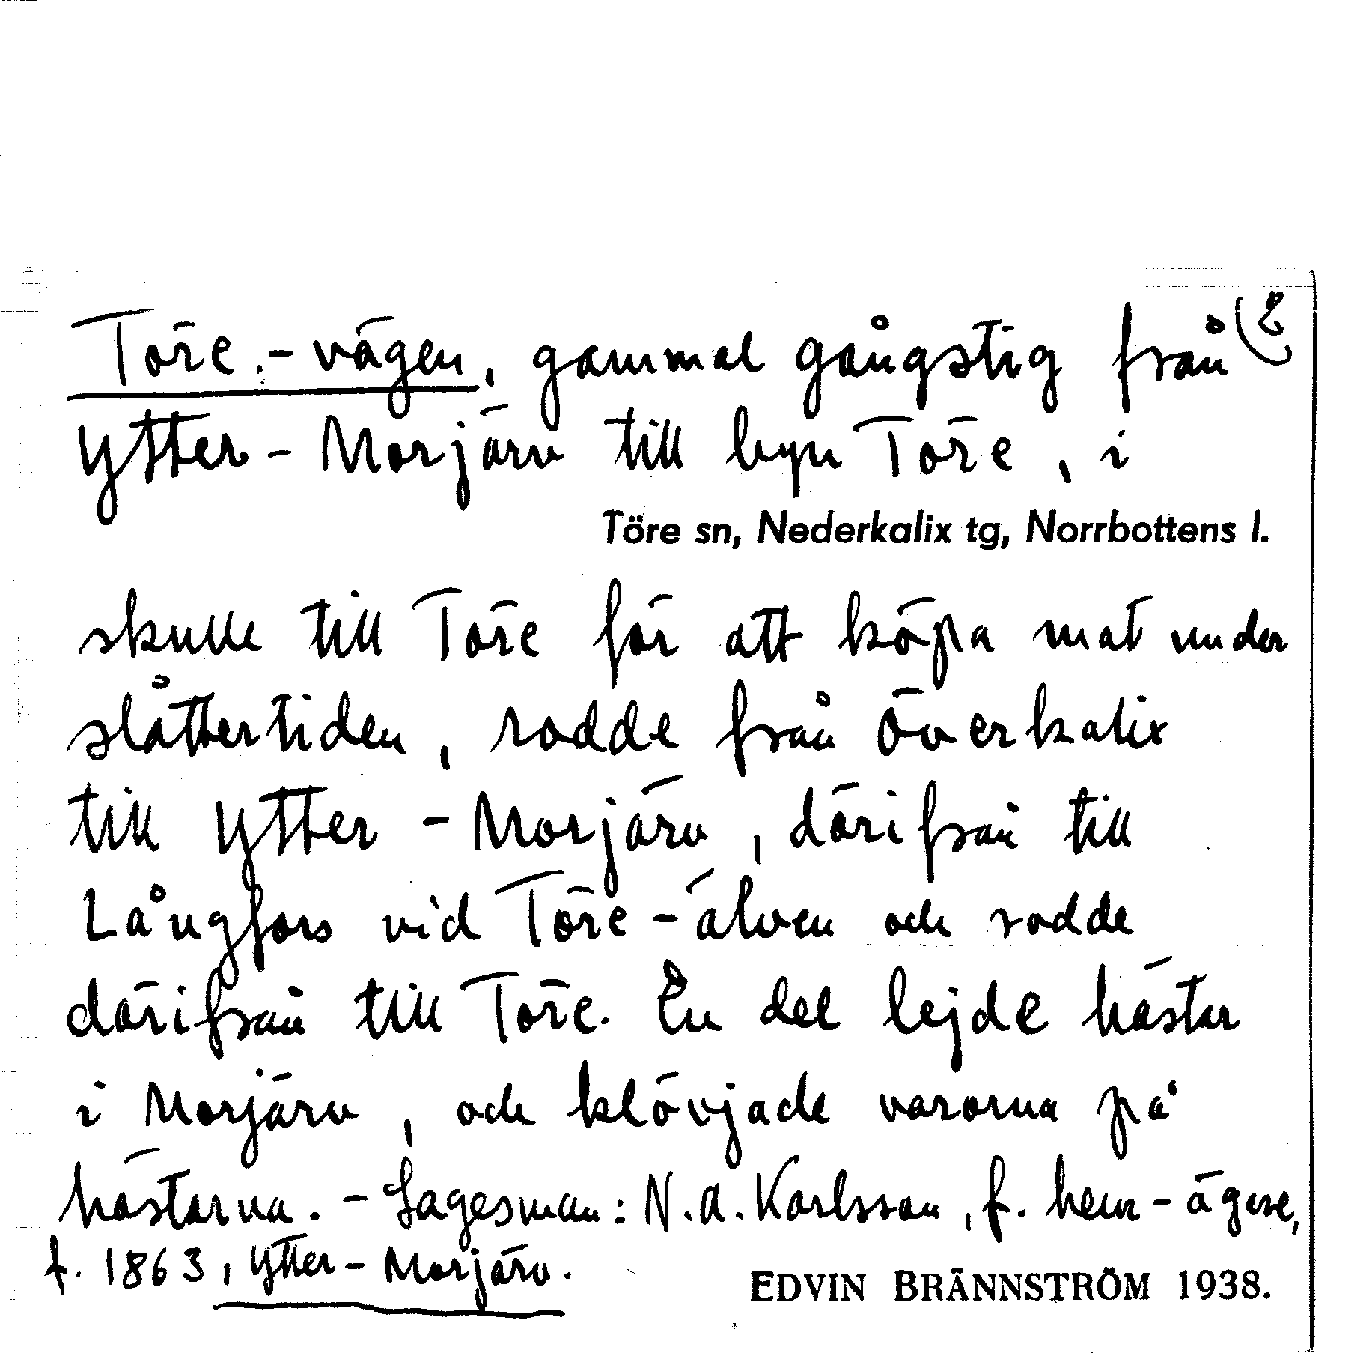 Töre-vägen, gammal gångstig från (2
Ytter-Morjärv till byn Töre, i
Töre sn, Nederkalix tg, Norrbottens l.
skulle till Töre för att köpa mat under
slåttertiden, rodde från Överkalix
till Ytter-Morjärv, därifrån till
Långfors vid Töre-älven och rodde
därifrån till Töre. En del lejde hästar
i Morjärv, och klövjade varorna på
hästarna. - Sagesman: N.A. Karlsson, f. hem-ägare,
f. 1863, Ytter-Morjärv.
EDVIN BRÄNNSTRÖM 1938.